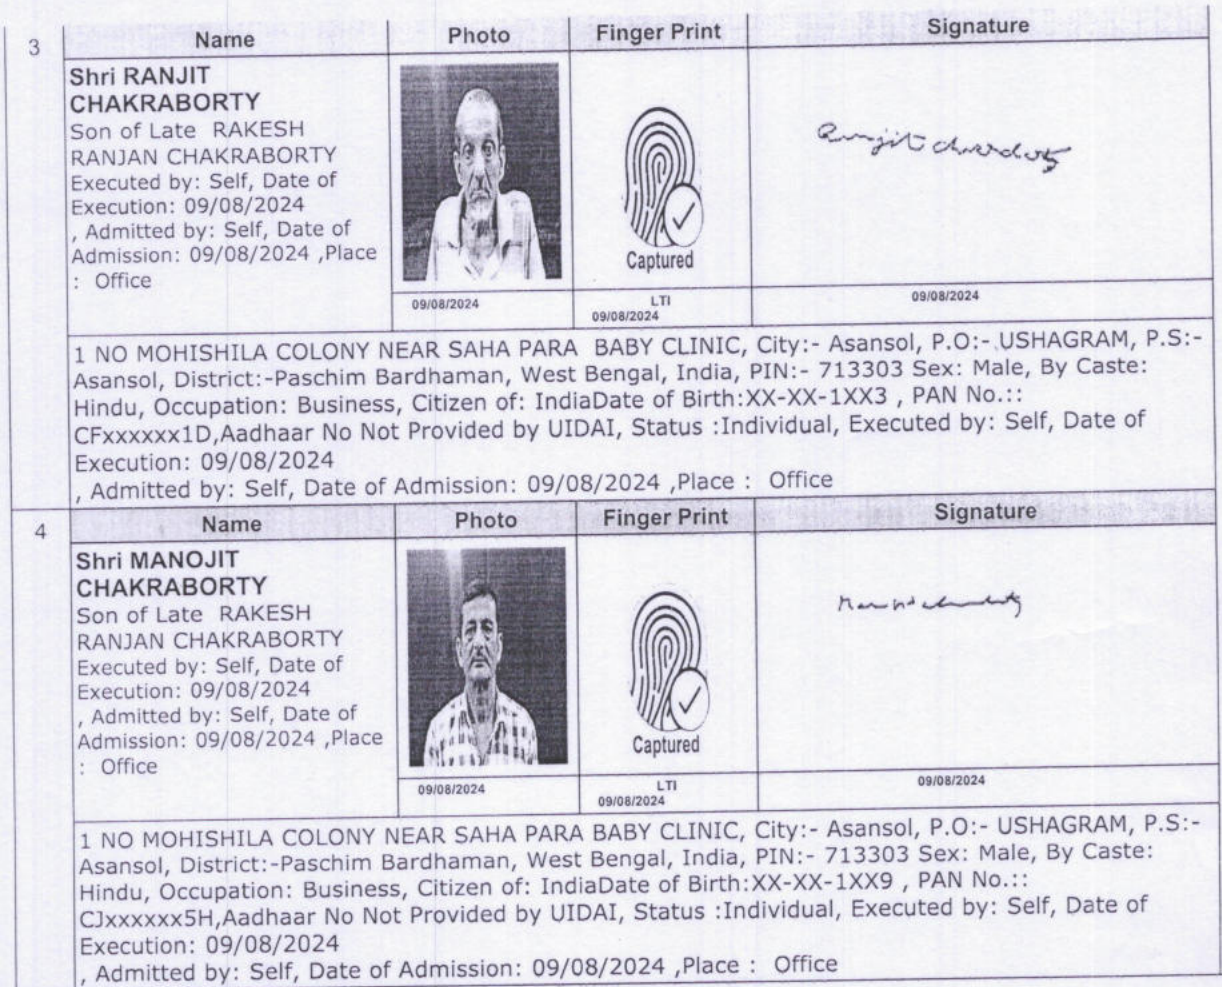 3
Name Photo Finger Print Signature
Shri RANJIT
CHAKRABORTY
Son of Late RAKESH
RANJAN CHAKRABORTY
Executed by: Self, Date of
Execution: 09/08/2024
, Admitted by: Self, Date of
Admission: 09/08/2024 ,Place
: Office
Captured
09/08/2024
LTI
09/08/2024
09/08/2024
1 NO MOHISHILA COLONY NEAR SAHA PARA BABY CLINIC, City:- Asansol, P.O:- USHAGRAM, P.S:-
Asansol, District:-Paschim Bardhaman, West Bengal, India, PIN:- 713303 Sex: Male, By Caste:
Hindu, Occupation: Business, Citizen of: IndiaDate of Birth:XX-XX-1XX3 , PAN No.::
CFxxxxxx1D,Aadhaar No Not Provided by UIDAI, Status :Individual, Executed by: Self, Date of
Execution: 09/08/2024
, Admitted by: Self, Date of Admission: 09/08/2024 ,Place : Office
4
Name Photo Finger Print Signature
Shri MANOJIT
CHAKRABORTY
Son of Late RAKESH
RANJAN CHAKRABORTY
Executed by: Self, Date of
Execution: 09/08/2024
, Admitted by: Self, Date of
Admission: 09/08/2024 ,Place
: Office
Captured
09/08/2024
LTI
09/08/2024
09/08/2024
1 NO MOHISHILA COLONY NEAR SAHA PARA BABY CLINIC, City:- Asansol, P.O:- USHAGRAM, P.S:-
Asansol, District:-Paschim Bardhaman, West Bengal, India, PIN:- 713303 Sex: Male, By Caste:
Hindu, Occupation: Business, Citizen of: IndiaDate of Birth:XX-XX-1XX9 , PAN No.::
CJxxxxxx5H,Aadhaar No Not Provided by UIDAI, Status :Individual, Executed by: Self, Date of
Execution: 09/08/2024
, Admitted by: Self, Date of Admission: 09/08/2024 ,Place : Office